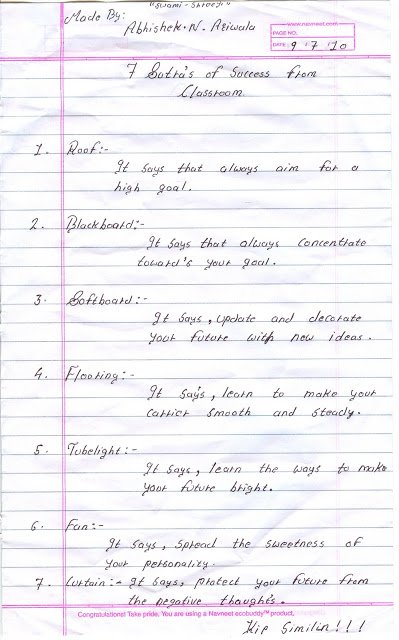 "Swami-Shreeji"
Made By:
Abhishek.N.Asiwala
www.navneet.com
PAGE NO.
DATE: 9 '7 '10
7 Sutra's of Success from
Classroom
1. Roof:-
It says that always aim for a
high goal.
2. Blackboard:-
It says that always concentrate
toward's your goal.
3. Softboard:-
It says, update and decorate
your future with new ideas.
4. Flooring:-
It says, learn to make your
carrier smooth and steady.
5. Tubelight:-
It says, learn the ways to make
your future bright.
6. Fan:-
It says, spread the sweetness of
your personality.
7. Curtain:- It says, protect your future from
the negative thought's.
Congratulations! Take pride. You are using a Navneet ecobuddy™ product.
Kip Similin!!!